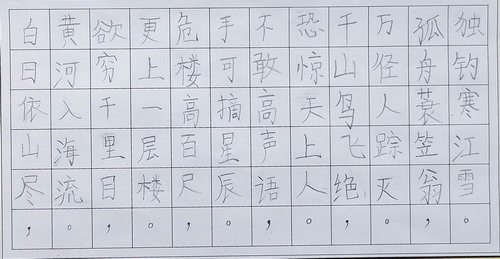 白日依山尽，
黄河入海流。
欲穷千里目，
更上一层楼。
危楼高百尺，
手可摘星辰。
不敢高声语，
恐惊天上人。
千山鸟飞绝，
万径人踪灭。
孤舟蓑笠翁，
独钓寒江雪。